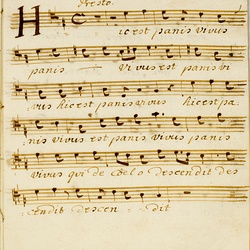 Presto.
Hic est panis vivus
panis vivus est panis vi
vus hic est panis vivus hic est pa
nis vivus est panis vivus panis
vivus qui de Coelo descendit des
cendit descen - dit